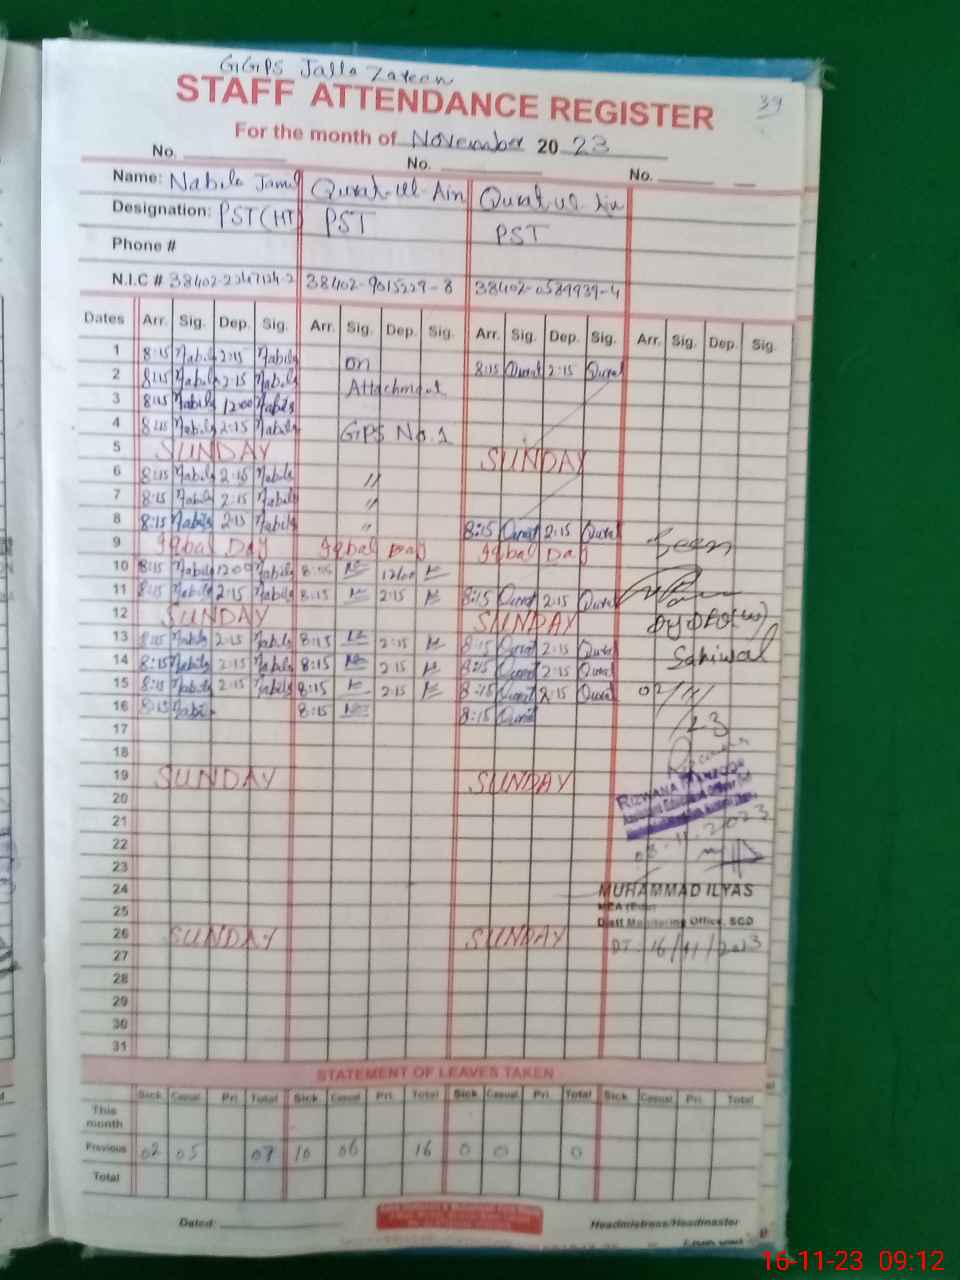 GGPS Jalla
39
STAFF ATTENDANCE REGISTER
For the month of November 20 23
No. No. No.
Name: Nabila Jamil Qurat-ul-Ain Qurat ul Ain
Designation: PST (HT) PST PST
Phone #
N.I.C # 38402- 38402- 38402-0589939-4
Dates Arr. Sig. Dep. Sig. Arr. Sig. Dep. Sig. Arr. Sig. Dep. Sig. Arr. Sig. Dep. Sig.
1 8:15 Nabila 2:15 Nabila on 8:15 Qurat 2:15 Qurat
2 8:15 Nabila 2:15 Nabila Attachment
3 8:15 Nabila 12:00 Nabila
4 8:15 Nabila 2:15 Nabila GPS No.1
5 SUNDAY SUNDAY
6 8:15 Nabila 2:15 Nabila "
7 8:15 Nabila 2:15 Nabila "
8 8:15 Nabila 2:15 Nabila " 8:15 Qurat 2:15 Qurat
Seen
9 Iqbal Day Iqbal Day Iqbal Day
10 8:15 Nabila 1200 Nabila 8:15 1200
11 8:15 Nabila 2:15 Nabila 8:15 2:15 8:15 Qurat 2:15 Qurat
12 SUNDAY SUNDAY
Dy DEO(W)
13 8:15 Nabila 2:15 Nabila 8:15 2:15 8:15 Qurat 2:15 Qurat
Sahiwal
14 8:15 Nabila 2:15 Nabila 8:15 2:15 8:15 Qurat 2:15 Qurat
15 8:15 Nabila 2:15 Nabila 8:15 2:15 8:15 Qurat 2:15 Qurat
02/11/23
16 8:15 Nabila 8:15 8:15 Qurat
17
18
19 SUNDAY SUNDAY
20
RIZWANA
21
08.11.2023
22
23
24
MUHAMMAD ILYAS
25
MEA
Distt Monitoring Office, SGD
26 SUNDAY SUNDAY
DT: 16/11/2023
27
28
29
30
31
STATEMENT OF LEAVES TAKEN
Sick Casual Pri Total Sick Casual Pri Total Sick Casual Pri Total Sick Casual Pri Total
This month
Previous 02 05 07 10 06 16 0 0 0
Total
Dated: Headmistress/Headmaster
16-11-23 09:12